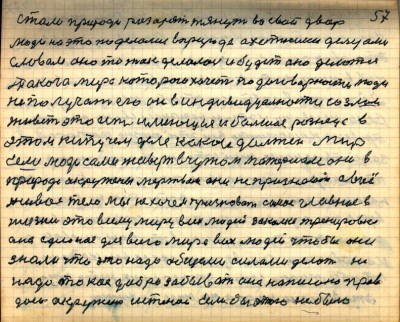 Стали природу разорат тянут во свой двор 57
люди на это поделали в природе а хоттими делами
словам оно это так делалос и будит оно делотся
такога мира которого хочет по договорности люди
не получат его он в индивидуалности со злом
живет это ест имеющия и болшие розница в
этом кипучем деле какое должен мир
сели люди сами живут в чужом материале они в
природе окружены мертвым они не признают своё
живое тело мы не хочем признават самое главное в
жизни это всему миру всех людей закалка тренировка
она сделоная для всего мира всех людей чтобы они
знали что это надо общими силами делат не
надо это как добро забыват она написано прав
дою окружено истеной если бы этого не было